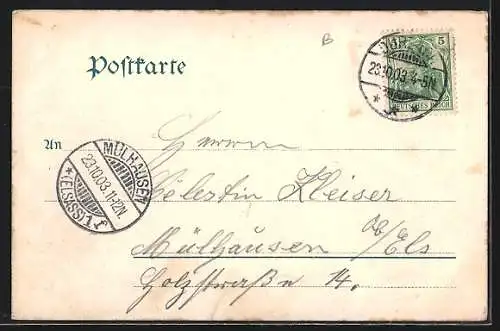 B
Postkarte
5
23.10.03. 4-5N.
DEUTSCHES REICH
An
Herrn
MÜLHAUSEN
23.10.03.11-12N.
*(ELSASS)1 f
Celestin Kleiser
Mülhausen ob/Els
Holzstraße 14.